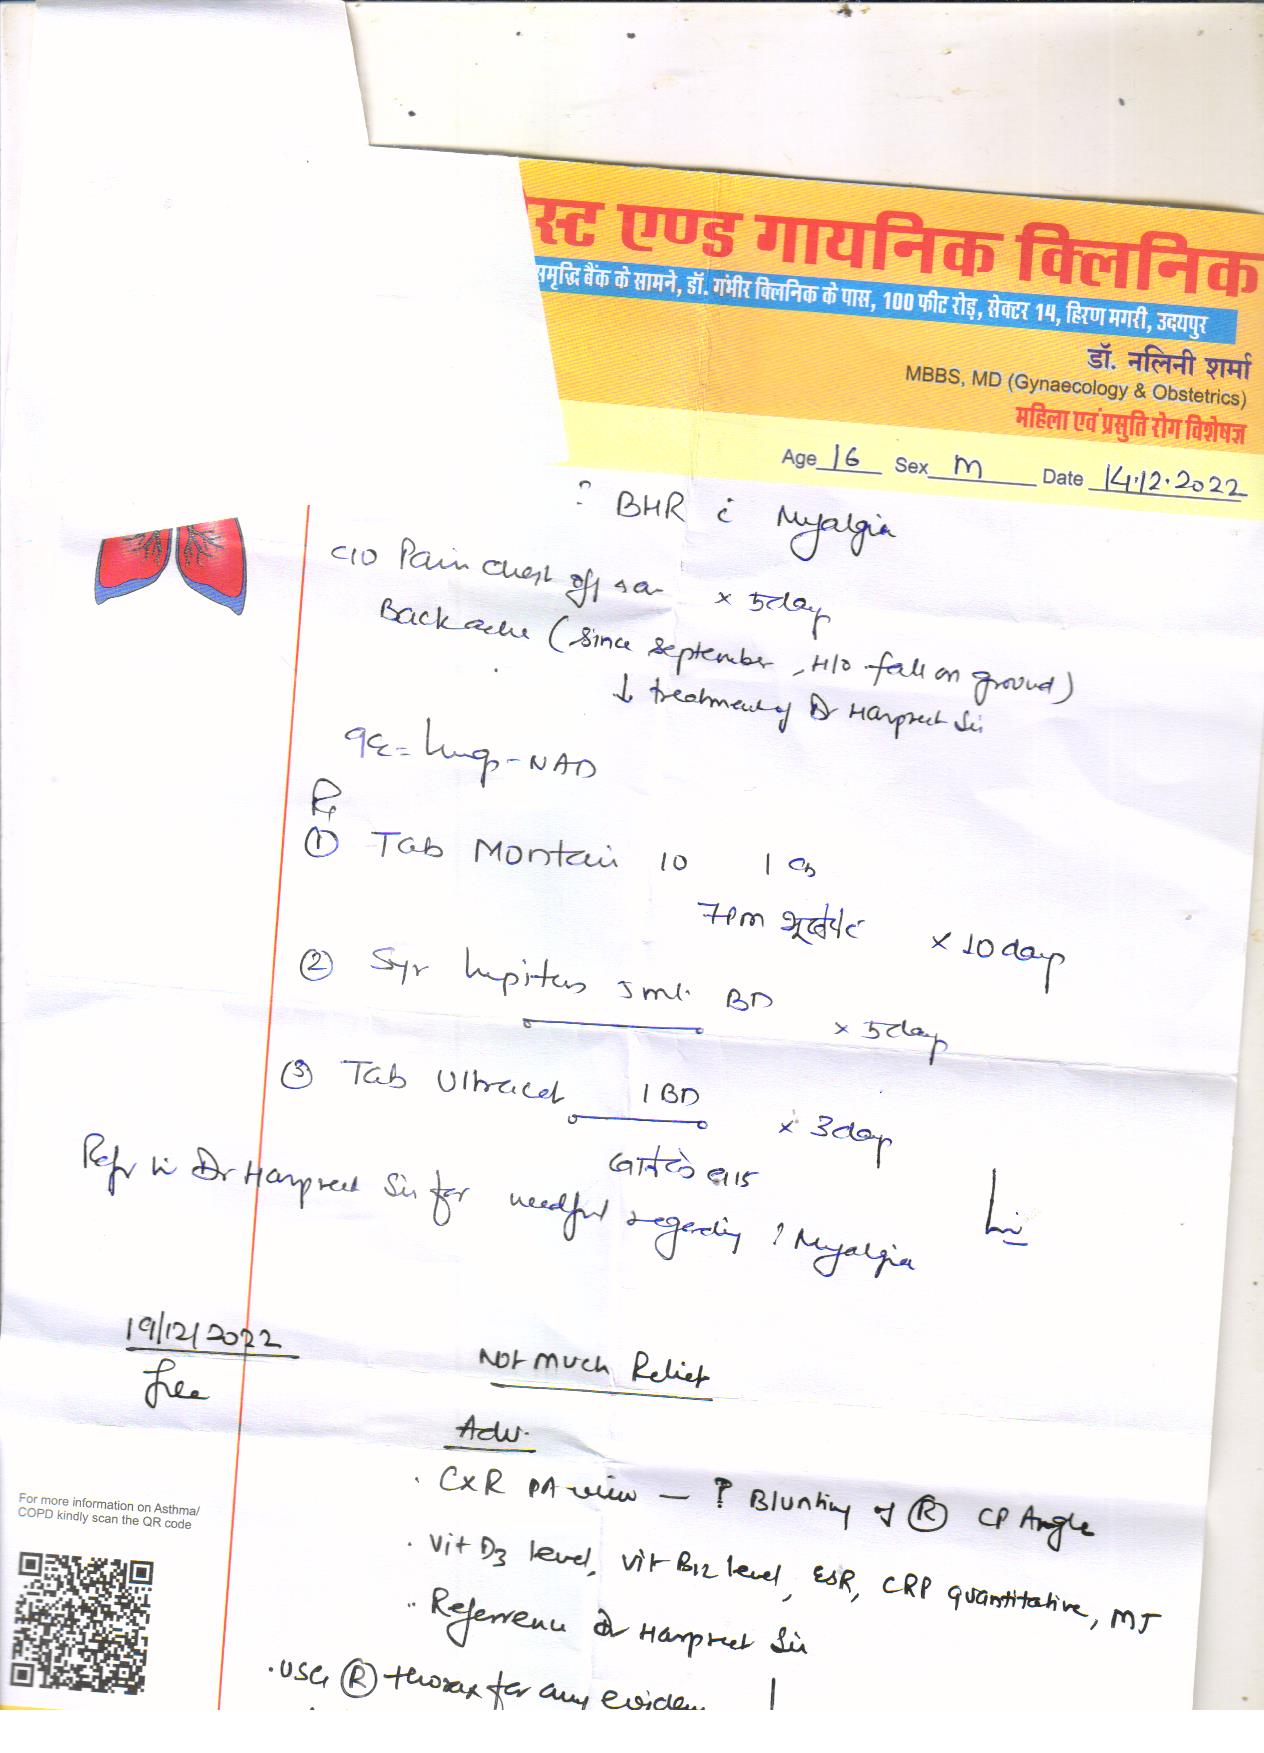 स्ट एण्ड गायनिक क्लिनिक
समृद्धि बैंक के सामने, डॉ. गंभीर क्लिनिक के पास, 100 फीट रोड़, सेक्टर 14, हिरण मगरी, उदयपुर
डॉ. नलिनी शर्मा
MBBS, MD (Gynaecology & Obstetrics)
महिला एवं प्रसुति रोग विशेषज्ञ
Age 16 Sex M Date 14.12.2022
? BHR c Myalgia
C/O Pain chest off & on x 5 day
Backache (since september, H/O fall on ground)
↓ treatment of Dr Harpreet Sir
Lung - NAD
Rx
① Tab Montair 10 1
7Pm x 10 day
② Syr 5 ml. BD x 5 day
③ Tab Ultracet 1 BD x 3 day
Refer to Dr Harpreet Sir for needful regarding ? Myalgia
19/12/2022
free
Not much Relief
Adv.
. CXR PA view — ? Blunting of Ⓡ CP Angle
. Vit D3 level, Vit B12 level, ESR, CRP quantitative, MT
. Referrence Dr Harpreet Sir
. USG Ⓡ thorax for any eviden
For more information on Asthma/
COPD kindly scan the QR code